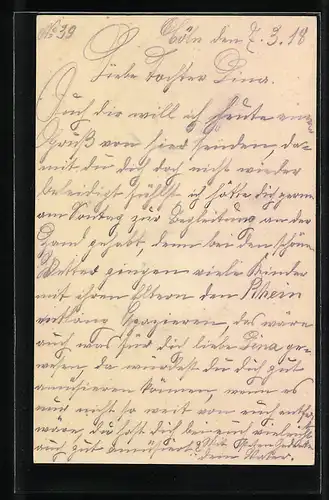 No 39 Cöln den 7.3.18
Liebe Tochter Lina.
Auch dir will ich heute einen
Gruß von hier senden, da-
mit du dich doch nicht wieder
beleidigt fühlst, ich hätte dich gerne
am Sontag zur Begleitung an der
Hand gehabt, denn bei den schönen
Wetter gingen viele Kinder
mit ihren Eltern den Rhein
entlang spazieren, das wäre
auch was für dich liebe Lina ge-
wesen, da würdest du dich gut
amüsieren können, wenn es
nur nicht so weit von euch entfernt
wäre, du hast dich bei euch vielleicht
auch gut amüsiert? Mit Gruß
dein Vater.